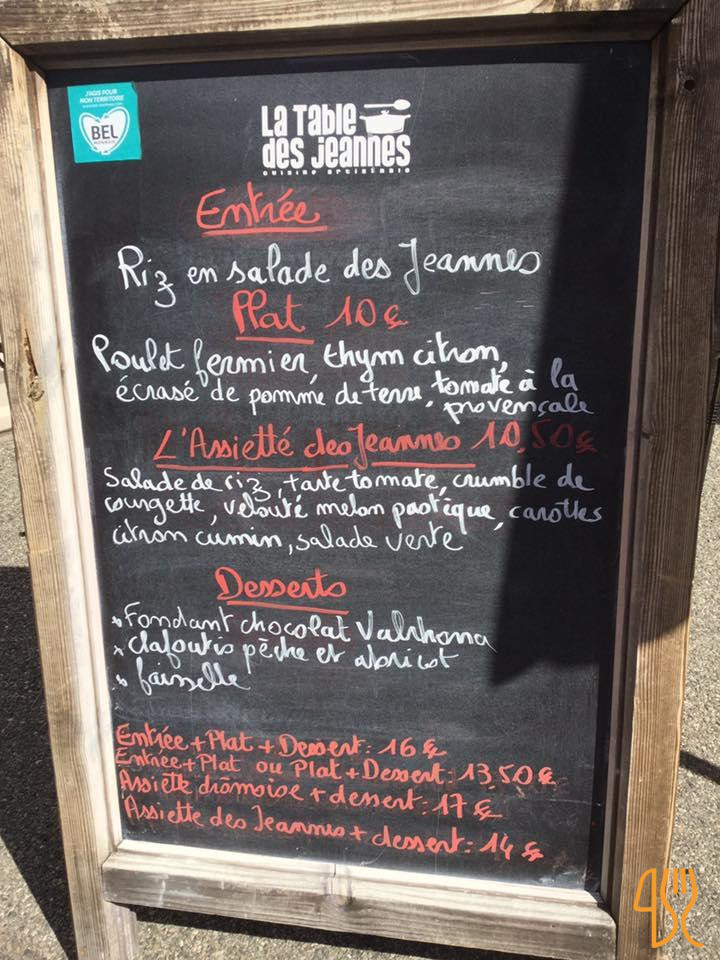 J'AGIS POUR
MON TERRITOIRE
BEL
MONNAIE
La Table
des Jeannes
CUISINE ARTISANALE
Entrée
Riz en salade des Jeannes
Plat 10€
Poulet fermier, thym citron,
écrasé de pomme de terre, tomate à la
provençale
L'Assietté des Jeannes 10,50€
Salade de riz, tarte tomate, crumble de
courgette, velouté melon pastèque, carottes
citron cumin, salade verte
Desserts
* Fondant chocolat Valrhona
* clafoutis pêche et abricot
* faisselle
Entrée + Plat + Dessert : 16€
Entrée + Plat ou Plat + Dessert : 13,50€
Assiette drômoise + dessert : 17€
Assiette des Jeannes + dessert : 14€